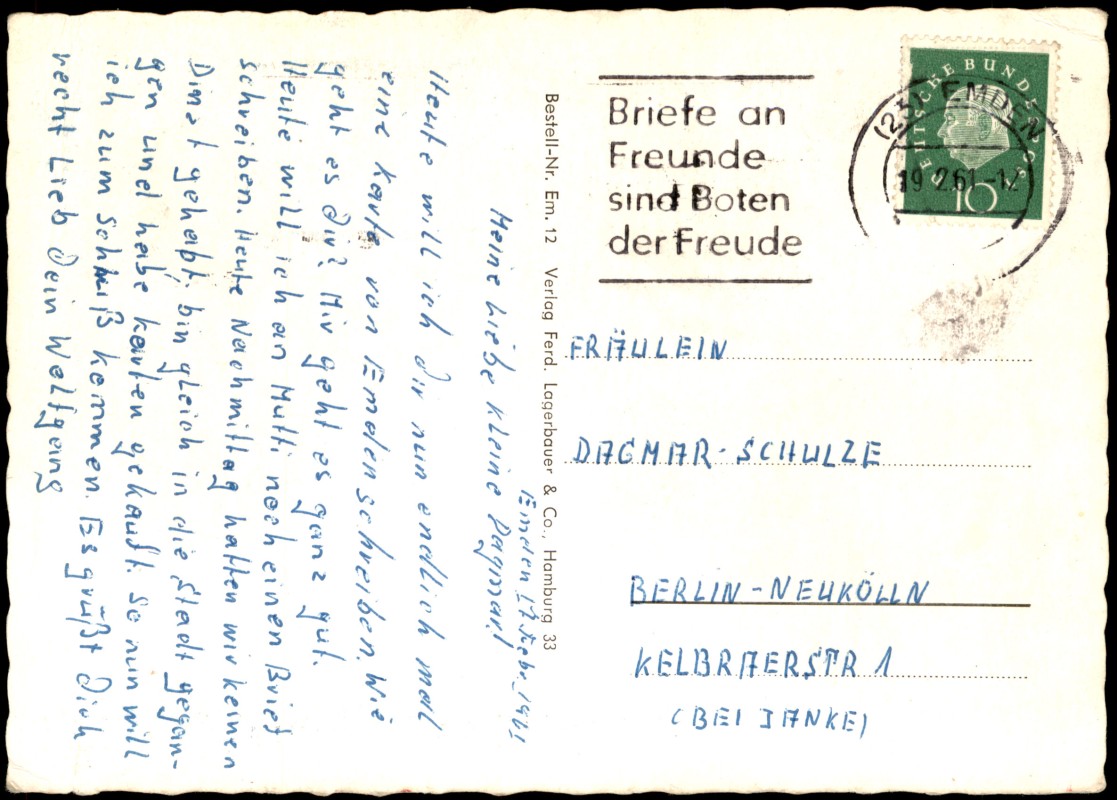 Emden 17. Febr. 1961
Meine liebe kleine Dagmar!
Heute will ich dir nun endlich mal
eine karte von Emden schreiben. Wie
geht es Dir? Mir geht es ganz gut.
Heute will ich an Mutti noch einen Brief
schreiben. Heute Nachmittag hatten wir keinen
Dinst gehabt, bin gleich in die Stadt gegan-
gen und habe karten gekauft. So nun will
ich zum Schluß kommen. Es grüßt Dich
recht Lieb Dein Wolfgang
Bestell-Nr. Em. 12 Verlag Ferd. Lagerbauer & Co., Hamburg 33
Briefe an
Freunde
sind Boten
der Freude
(23) EMDEN
19.2.61-12
DEUTSCHE BUNDESPOST
10
FRÄULEIN
DAGMAR-SCHULZE
BERLIN-NEUKÖLLN
KELBRAERSTR 1
(BEI JANKE)